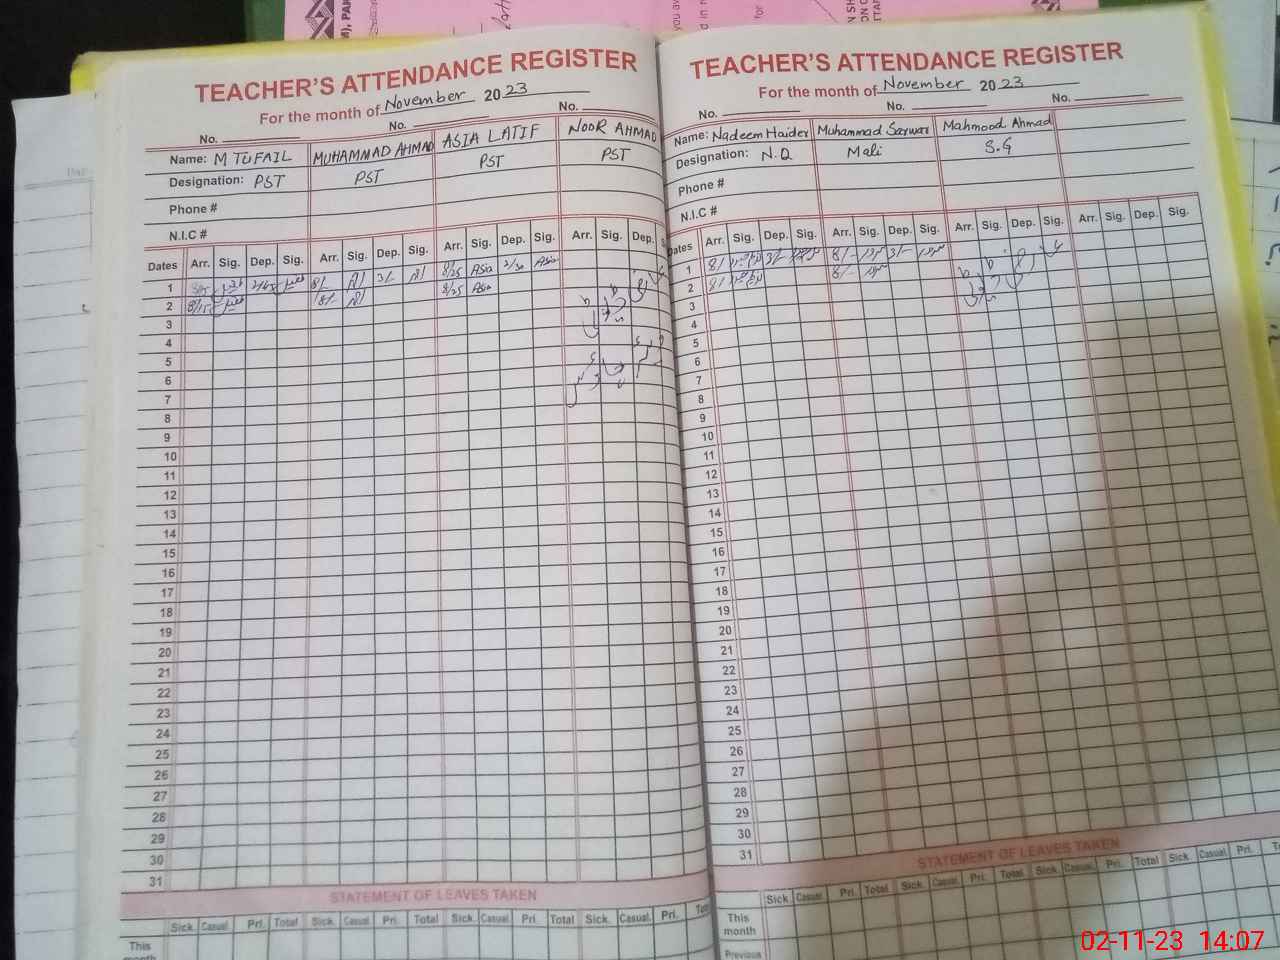 TEACHER'S ATTENDANCE REGISTER
For the month of November 2023
No. No. No.
Name: M TUFAIL MUHAMMAD AHMAD ASIA LATIF NOOR AHMAD
Designation: PST PST PST PST
Phone #
N.I.C #
Dates Arr. Sig. Dep. Sig. Arr. Sig. Dep. Sig. Arr. Sig. Dep. Sig. Arr. Sig. Dep.
1 8/- 3/- 8/25 Asia 2/30 Asia
2 8/15 8/- 8/25 Asia
3
4
5
6
7
8
9
10
11
12
13
14
15
16
17
18
19
20
21
22
23
24
25
26
27
28
29
30
31
STATEMENT OF LEAVES TAKEN
Sick. Casual. Pri. Total Sick. Casual. Pri. Total Sick. Casual. Pri. Total Sick. Casual. Pri.
This
month
TEACHER'S ATTENDANCE REGISTER
For the month of November 2023
No. No. No.
Name: Nadeem Haider Muhammad Sarwar Mahmood Ahmad
Designation: N.Q Mali S.G
Phone #
N.I.C #
Dates Arr. Sig. Dep. Sig. Arr. Sig. Dep. Sig. Arr. Sig. Dep. Sig. Arr. Sig. Dep. Sig.
1 8/- 3/- 8/- 3/-
2 8/- 8/-
3
4
5
6
7
8
9
10
11
12
13
14
15
16
17
18
19
20
21
22
23
24
25
26
27
28
29
30
31
STATEMENT OF LEAVES TAKEN
Sick. Casual. Pri. Total Sick. Casual. Pri. Total Sick. Casual. Pri. Total Sick. Casual. Pri.
This
month
Previous
02-11-23 14:07